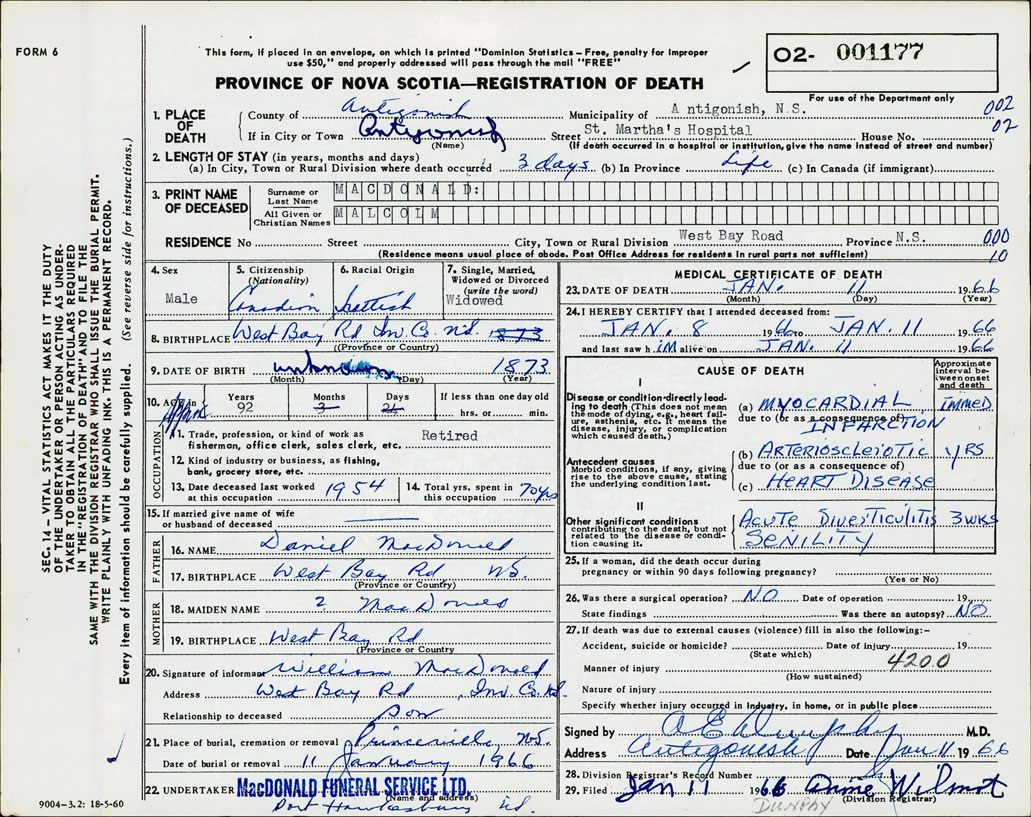 FORM 6
This form, if placed in an envelope, on which is printed "Dominion Statistics – Free, penalty for improper
use $50," and properly addressed will pass through the mail "FREE"
PROVINCE OF NOVA SCOTIA—REGISTRATION OF DEATH
O2- 001177
For use of the Department only
002
02
1. PLACE OF DEATH
County of Antigonish Municipality of Antigonish, N.S.
If in City or Town Antigonish Street St. Martha's Hospital House No.
(Name) (If death occurred in a hospital or institution, give the name instead of street and number)
2. LENGTH OF STAY (in years, months and days)
(a) In City, Town or Rural Division where death occurred 3 days (b) In Province Life (c) In Canada (if immigrant)
3. PRINT NAME OF DECEASED
Surname or Last Name MACDONALD:
All Given or Christian Names MALCOLM
RESIDENCE No Street City, Town or Rural Division West Bay Road Province N.S. 000
(Residence means usual place of abode. Post Office Address for residents in rural parts not sufficient) 10
4. Sex Male
5. Citizenship (Nationality) Canadian
6. Racial Origin Scottish
7. Single, Married, Widowed or Divorced (write the word) Widowed
8. BIRTHPLACE West Bay Rd Inv. Co. N.S. 1873
(Province or Country)
9. DATE OF BIRTH unknown 1873
(Month) (Day) (Year)
10. AGE in Years 92 Months 3 Days 21 If less than one day old hrs. or min.
OCCUPATION
11. Trade, profession, or kind of work as fisherman, office clerk, sales clerk, etc. Retired
12. Kind of industry or business, as fishing, bank, grocery store, etc.
13. Date deceased last worked at this occupation 1954
14. Total yrs. spent in this occupation 70yrs
15. If married give name of wife or husband of deceased
FATHER
16. NAME Daniel MacDonald
17. BIRTHPLACE West Bay Rd NS.
(Province or Country)
MOTHER
18. MAIDEN NAME ? MacDonald
19. BIRTHPLACE West Bay Rd
(Province or Country
20. Signature of informant William MacDonald
Address West Bay Rd, Inv. Co. N.S.
Relationship to deceased Son
21. Place of burial, cremation or removal Princeville, N.S.
Date of burial or removal 11 January 1966
22. UNDERTAKER MacDONALD FUNERAL SERVICE LTD.
(Name and address)
Port Hawkesbury N.S.
9004–3.2: 18-5-60
MEDICAL CERTIFICATE OF DEATH
23. DATE OF DEATH JAN. 11 1966
(Month) (Day) (Year)
24. I HEREBY CERTIFY that I attended deceased from:
JAN. 8 1966 to JAN. 11 1966
and last saw him alive on JAN. 11 1966
CAUSE OF DEATH
Approximate interval between onset and death
I
Disease or condition-directly leading to death (This does not mean the mode of dying, e.g., heart failure, asthenia, etc. It means the disease, injury, or complication which caused death.)
(a) MYOCARDIAL IMMED
due to (or as a consequence of)
INFARCTION
Antecedent causes
Morbid conditions, if any, giving rise to the above cause, stating the underlying condition last.
(b) ARTERIOSCLEROTIC YRS
due to (or as a consequence of)
(c) HEART DISEASE
II
Other significant conditions contributing to the death, but not related to the disease or condition causing it.
ACUTE DIVERTICULITIS 3 WKS
SENILITY
25. If a woman, did the death occur during pregnancy or within 90 days following pregnancy?
(Yes or No)
26. Was there a surgical operation? NO Date of operation 19
State findings Was there an autopsy? NO
27. If death was due to external causes (violence) fill in also the following:–
Accident, suicide or homicide? Date of injury 19
(State which) 4200
Manner of injury
(How sustained)
Nature of injury
Specify whether injury occurred in industry, in home, or in public place
Signed by A E Dunphy M.D.
Address Antigonish Date Jan 11 1966
28. Division Registrar's Record Number
29. Filed Jan 11 1966 Anne Wilmot
DUNPHY (Division Registrar)
SEC. 14 – VITAL STATISTICS ACT MAKES IT THE DUTY
OF THE UNDERTAKER OR PERSON ACTING AS UNDER-
TAKER TO OBTAIN ALL THE PARTICULARS REQUIRED
IN THE "REGISTRATION OF DEATH" AND TO FILE THE
SAME WITH THE DIVISION REGISTRAR WHO SHALL ISSUE THE BURIAL PERMIT.
WRITE PLAINLY WITH UNFADING INK. THIS IS A PERMANENT RECORD.
Every item of information should be carefully supplied. (See reverse side for instructions.)